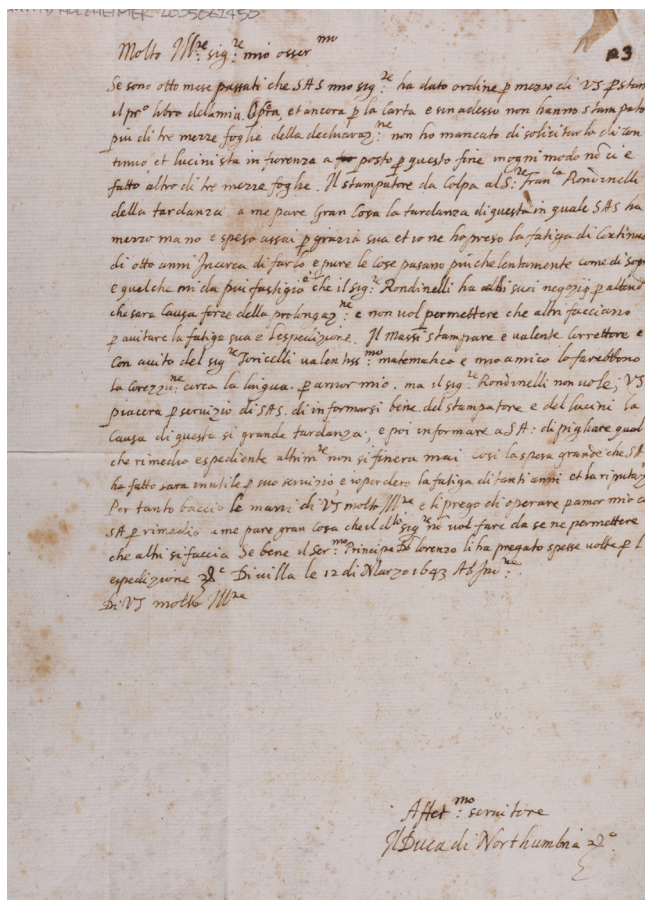 HOLZHEIMER 2005061450
23
Molto Ill:re sig:re mio osser:mo
Se sono otto mesi passati che SAS mio sig:re ha dato ordine p mezzo di VS p stam
il pr:o libro della mia Op:ra, et ancora p la Carta e sin adesso non hanno stampato
piu di tre mezze foghe della declaraz:ne non ho mancato di solicitarlo di con
tinuo, et lucini sta in fiorenza a posto p questo fine in ogni modo nõ ci e
fatto altro di tre mezze foghe. Il stampatore da Colpa al S:re Fran:co Rondinelli
della tardanza, a me pare Gran Cosa la tardanza di questa in quale SAS ha
mezzo mano e speso assai p grazia sua et io ne ho preso la fatiga di Continuo
di otto anni Incerca di farlo e pure le Cose pasano piu che lentamente come di sop
e quel che mi da piu fastigio e che il sig:re Rondinelli ha altri suoi negozij p attend
che sara Causa forze della prolongaz:ne e non vol permettere che altri facciano
p avitare la fatiga sua e l'espedizione. Il Massi stampare e valente Correttore e
Con avito del sig:re Toricelli valentiss:mo matematico e mio amico lo farebbono
la Corezzio:ne circa la lingua. p amor mio. ma il sig:re Rondinelli non vole; VS
piacera p servizio di SAS. di informarsi bene del stampatore e del lucini la
Causa di questa si grande tardanza; e poi informare a SA: di pigliare qual
che rimedio espediente altrim:te non si finera mai Cosi la spesa grande che SA
ha fatto sara inutile p suo servizio e io perdero la fatiga di tanti anni et la riputaz
Per tanto baccio le mani di VS molto Ill:re e li prego di operare p amor mio c
SA p rimedio a me pare gran Cosa che il d:to sig:re nõ vol fare da se ne permettere
che altri si faccia Se bene il Ser:mo Principe lorenzo li ha pregato spesse volte p l
espedizione Di villa le 12 di Marzo 1643 Ab Inc:ne
Di VS molto Ill:re
Affet:mo servitore
Il Duca di Northumbria